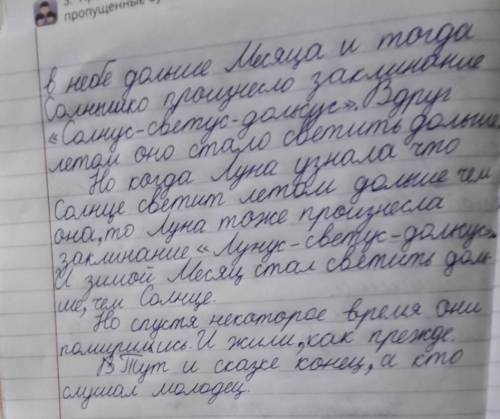 пропущенные
в небе дольше Месяца и тогда
Солнышко произнесло заклинание
«Солнус-светус-дольсус». Вдруг
летом оно стало светить дольше
Но когда Луна узнала что
Солнце светит летом дольше чем
она, то Луна тоже произнесла
заклинание «Лунус-светус-дольсус».
И зимой Месяц стал светить доль-
ше, чем Солнце.
Но спустя некоторое время они
помирились. И жили, как прежде.
Тут и сказке конец, а кто
слушал молодец.